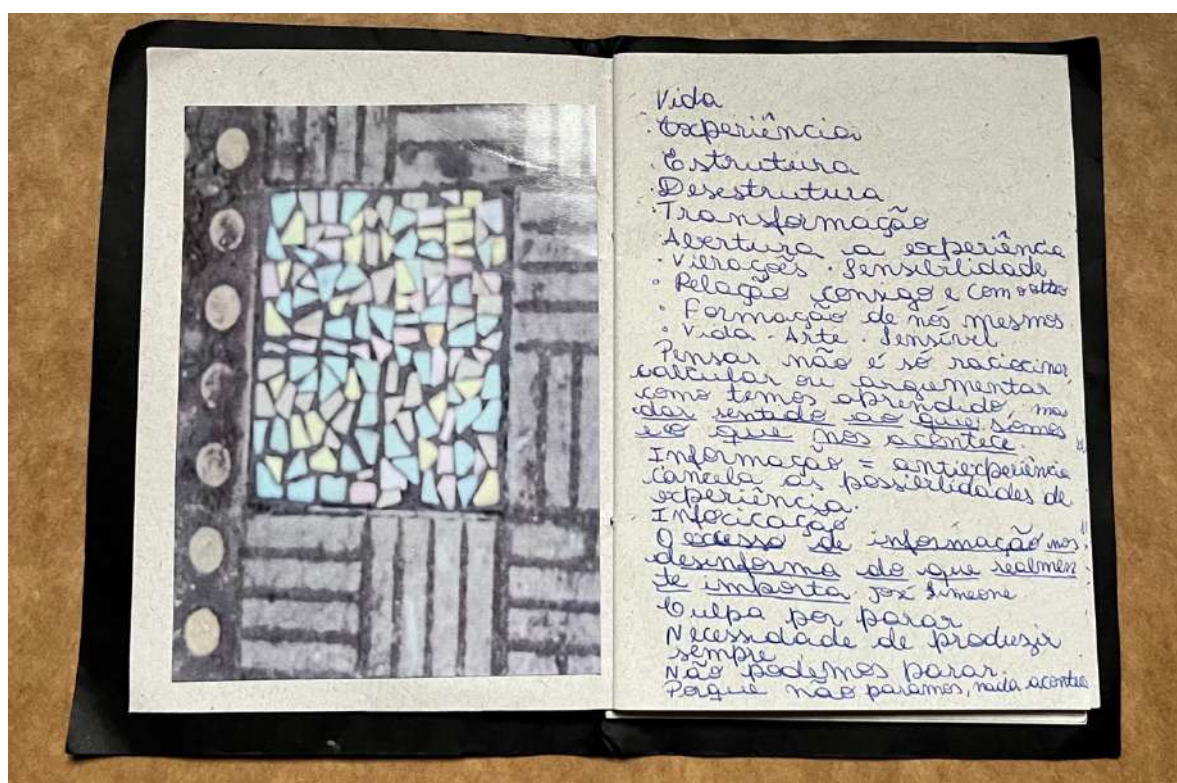 Vida
. Experiência
. Estrutura
. Desestrutura
. Transformação
. Abertura a experiência
. Vibrações . Sensibilidade
. Relação consigo e com o outro
. Formação de nós mesmos
. Vida . Arte . Sensível
Pensar não é só raciocinar,
calcular ou argumentar
como temos aprendido, mas
dar sentido ao que somos
e o que nos acontece. "
Informação = antiexperiência
cancela as possibilidades de
experiência.
Intoxicação "
O excesso de informação nos
desinforma do que realmen
te importa. José Simeone
Culpa por parar
Necessidade de produzir
sempre
Não podemos parar.
Porque não paramos, nada acontece